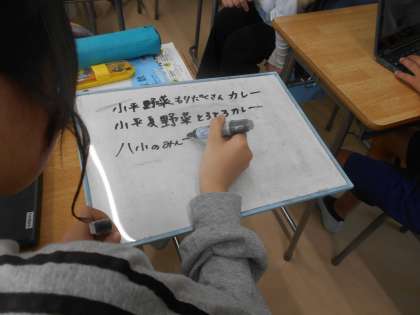 小平野菜もりだくさんカレー
小平夏野菜とろとろカレー
八小のみんー